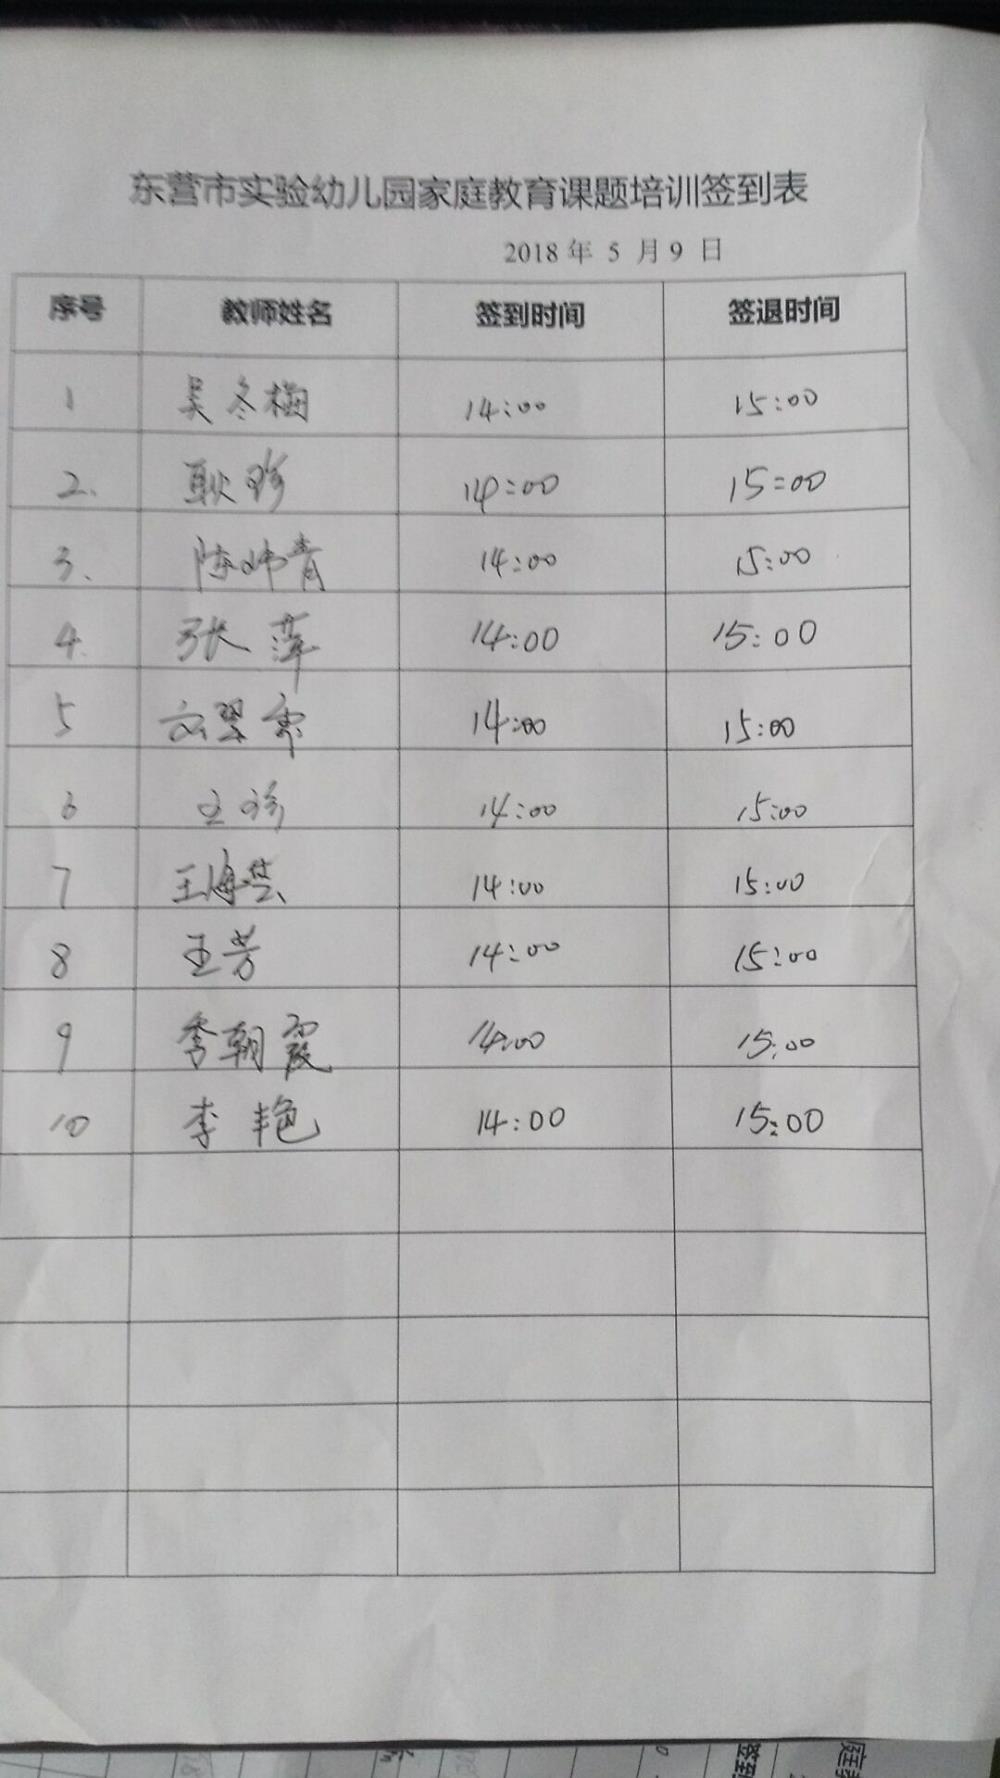 东营市实验幼儿园家庭教育课题培训签到表
2018 年 5 月 9 日
序号 教师姓名 签到时间 签退时间
1 吴冬梅 14:00 15:00
2. 耿珍 14:00 15:00
3. 陈炜青 14:00 15:00
4. 张萍 14:00 15:00
5 14:00 15:00
6 王珍 14:00 15:00
7 王海芸 14:00 15:00
8 王芳 14:00 15:00
9 李朝霞 14:00 15:00
10 李艳 14:00 15:00
签到
庭